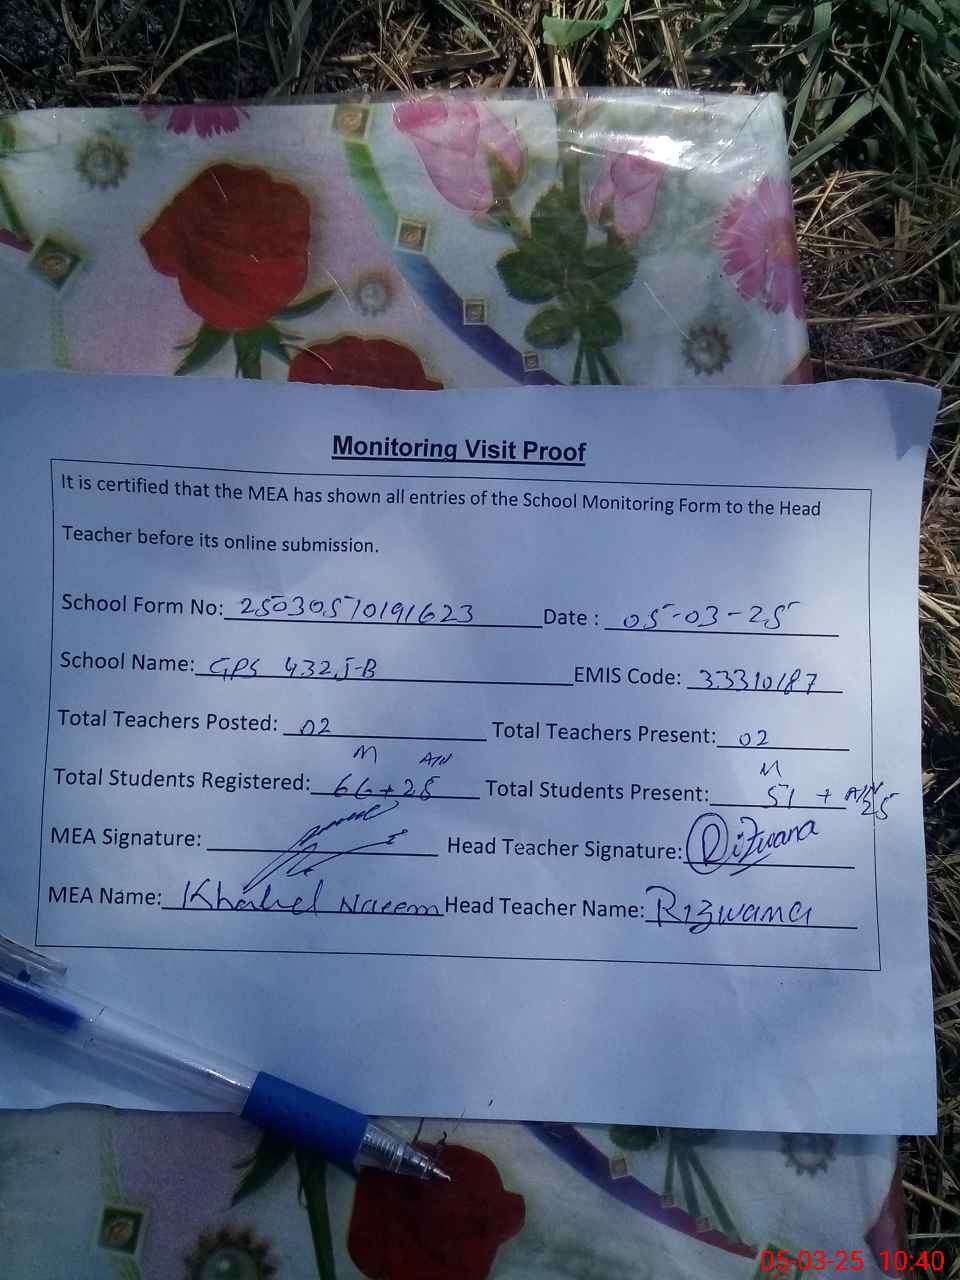 Monitoring Visit Proof
It is certified that the MEA has shown all entries of the School Monitoring Form to the Head
Teacher before its online submission.
School Form No: 25030570191623 Date : 05-03-25
School Name: GPS 432 J-B EMIS Code: 33310187
Total Teachers Posted: 02 Total Teachers Present: 02
M A/N M
Total Students Registered: 66+25 Total Students Present: 51 + A/N 25
MEA Signature: Head Teacher Signature: Rizwana
MEA Name: Khalid Naeem Head Teacher Name: Rizwana
05-03-25 10:40